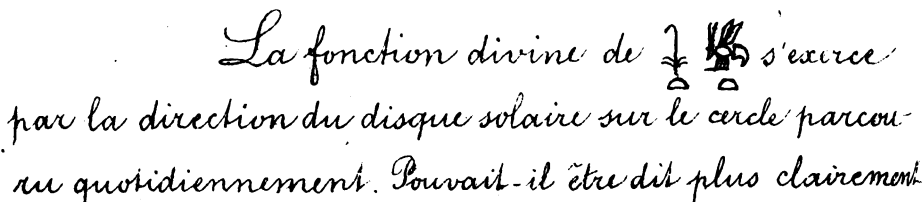 La fonction divine de 𓇓𓏏 𓆤𓏏 s'exerce
par la direction du disque solaire sur le cercle parcou-
ru quotidiennement. Pouvait-il être dit plus clairement